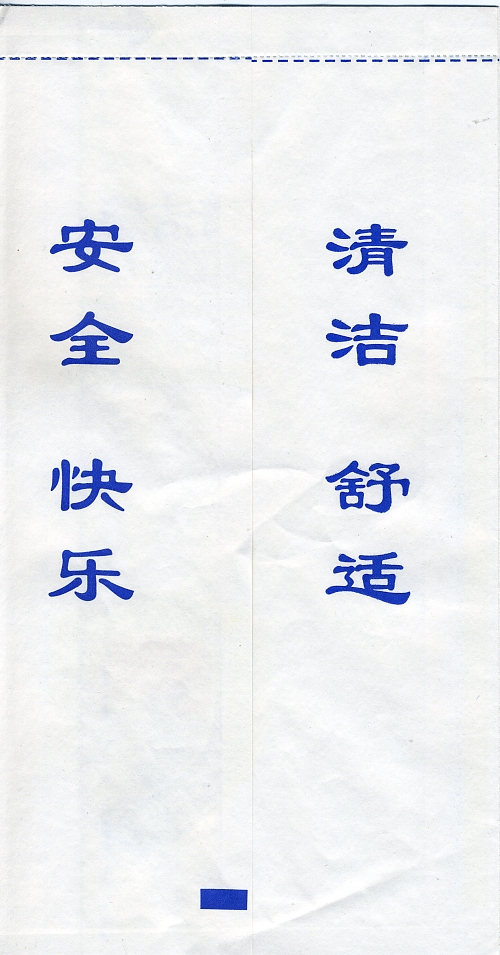 清洁 舒适
安全 快乐